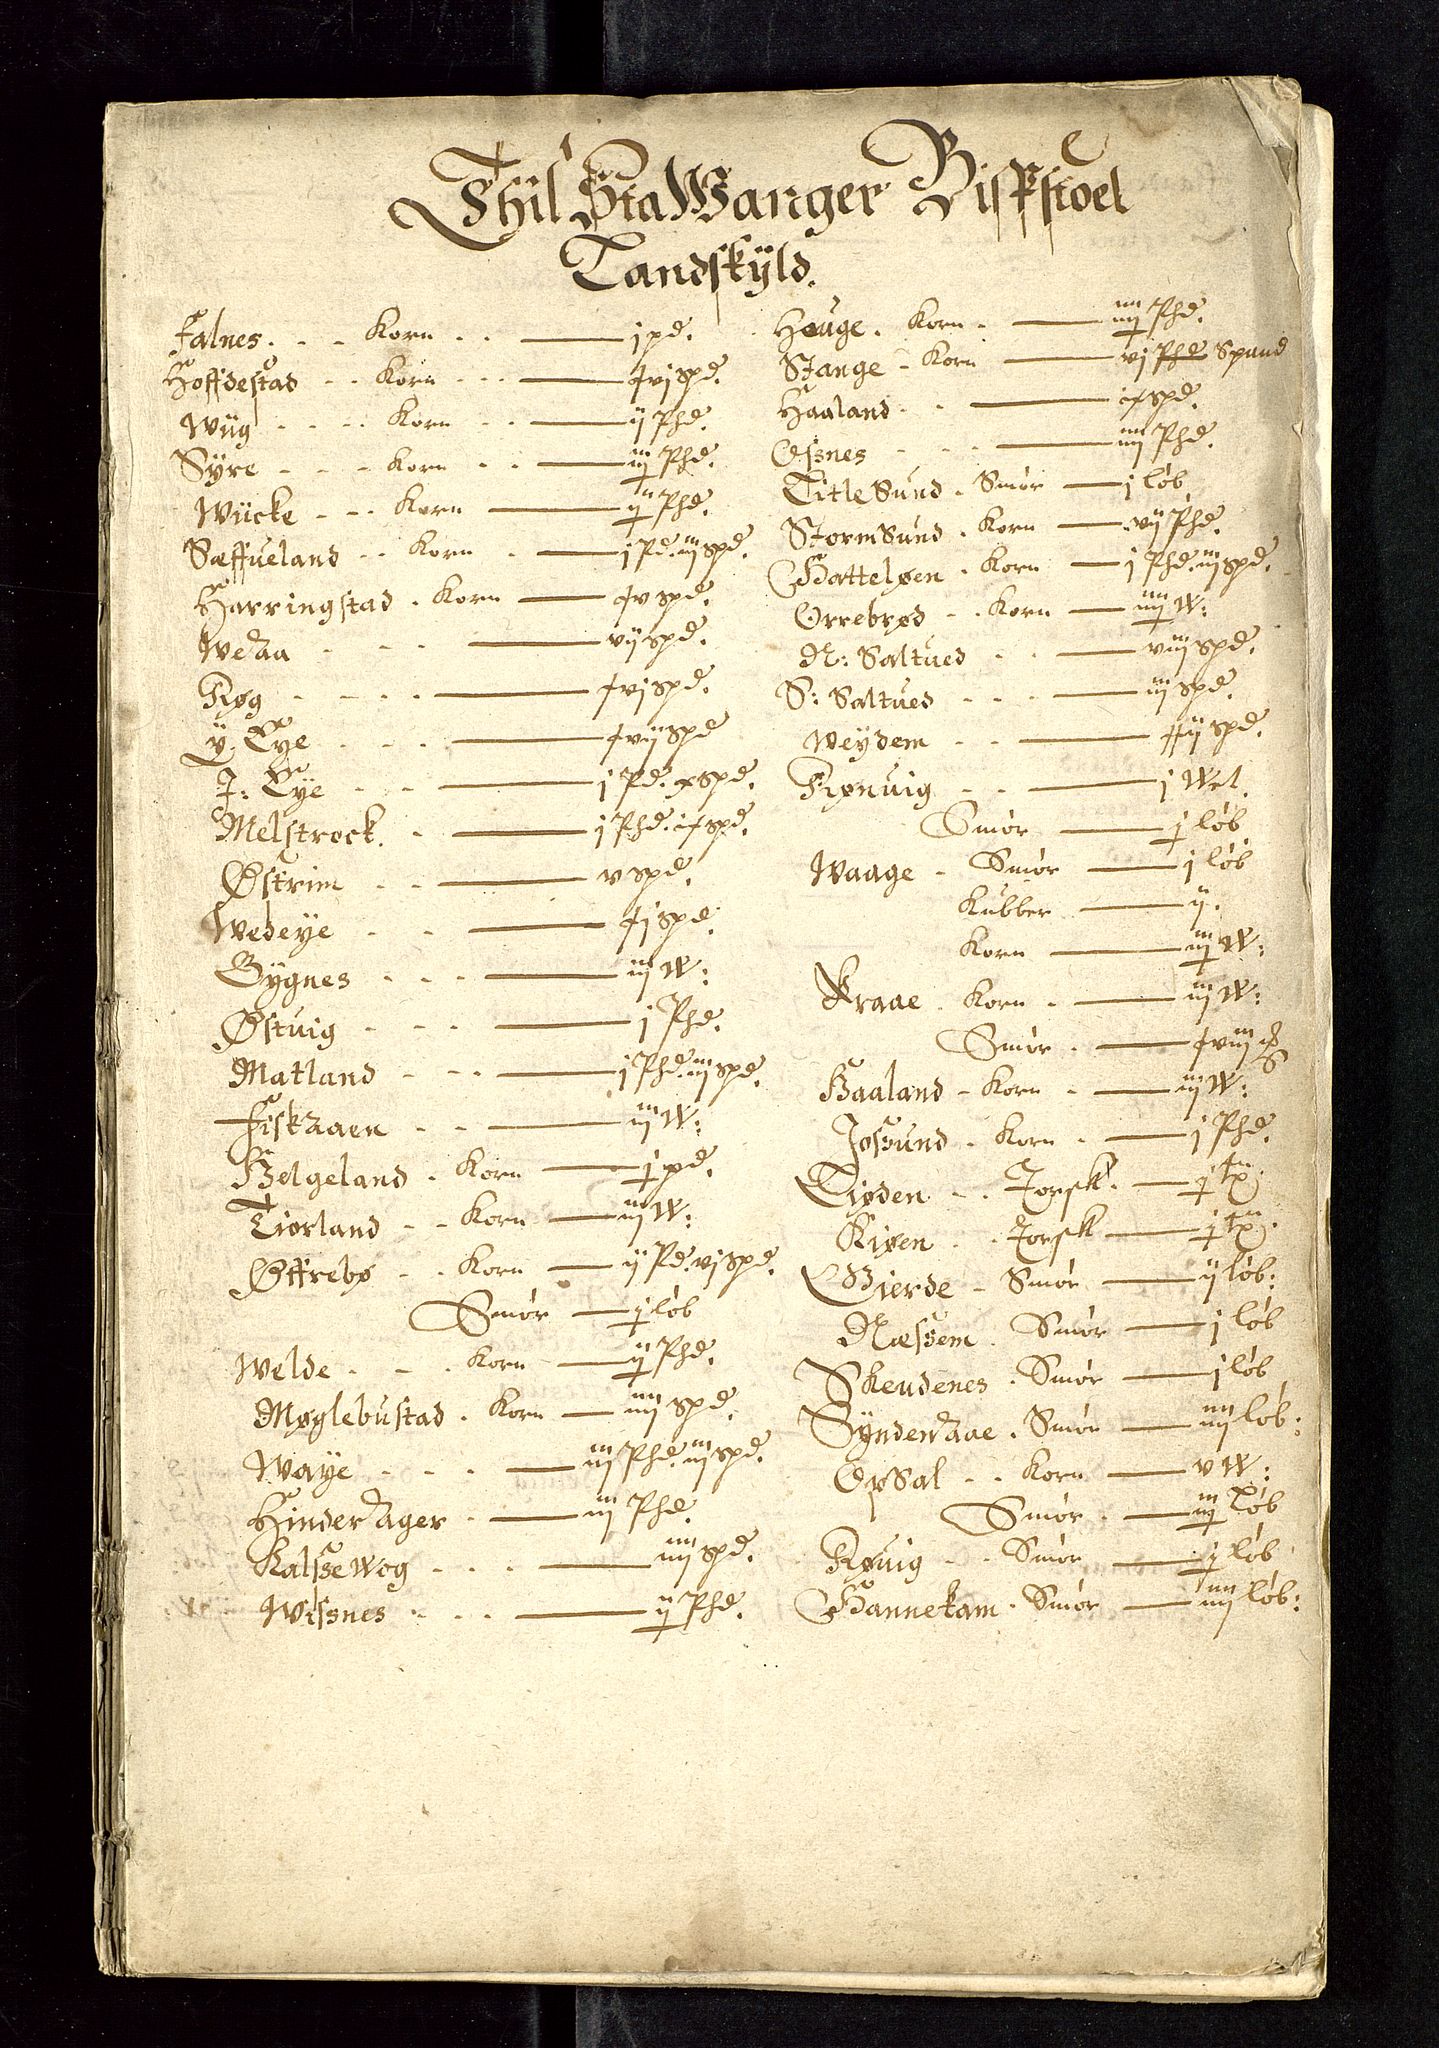 Thil StaWanger Bispstoel
Landskÿld.
Falnes. Korn j pd.
Hoffdestad Korn ƒvj spd.
Wiig Korn ij Phd.
Sÿre Korn iij Phd.
Wücke Korn ij Phd.
Sæffueland Korn j Pd. iij spd.
Harringstad. Korn ƒv spd.
Wedaa vij spd.
Røg ƒvj spd.
ÿ. Eÿe ƒvij spd
J: Eÿe j Pd. x spd.
Melstrock. j Phd. iƒ spd.
Østrim v spd.
Wedeÿe ƒj spd.
Gÿgnes iij W:
Østuig j Phd.
Matland j Phd. iij spd.
Fiskaaen iij W:
Helgeland. Korn j pd.
Tiorland Korn iij W:
Øffrebø Korn ij Pd. vj spd.
Smør j løb
Welde Korn ij Phd.
Møglebustad. Korn iiij spd.
Waÿe iij Phd. iij spd.
Hinderager iij Phd.
Kalssewog iiij spd.
Wissnes ij Phd.
Houge. Korn iiij Phd.
Stange Korn vj Phd Spand
Haaland iƒ spd.
Ossnes iiij Phd.
LitleSund. Smør j løb
StormSund. Korn vij Phd.
Hatteløen. Korn j Phd. iij spd.
Orrebrød Korn iiij W:
N: Saltued viij spd.
S: Saltued iij spd.
Weÿdem ƒƒij spd.
Rønuig j Wet.
Smør j løb
Waage Smør j løb
Kubber ij.
Korn iij W:
Kraae. Korn iij W:
Smør ƒviij
Haaland Korn iij W:
Jossund Korn j Phd.
Liøden Torsk j tn.
Kiøen Torsk j tn.
Gierde Smør ij løb:
Næssem Smør j løb
Skeudenes. Smør j løb
Sÿnderaae. Smør iiij løb:
OpSal Korn v W:
Smør iij løb
Røuig Smør j løb
Hannekam. Smør iiij løb: